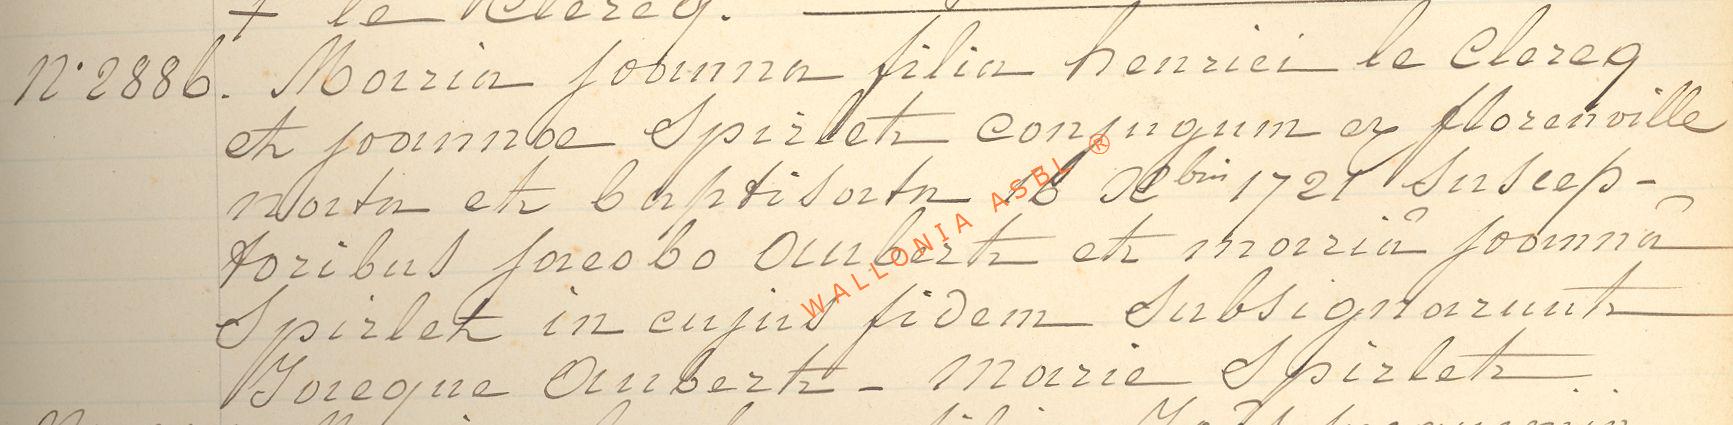 + le Clercq.
N° 2886. Maria joanna filia henrici le Clercq
et joannae Spirlet conjugum ex florenville
nata et baptisata 16 Xbris 1721 Suscep-
toribus jacobo Aubert et mariâ joannâ
Spirlet in cujus fidem Subsignarunt
Jacque Aubert - Marie Spirlet
WALLONIA ASBL ®